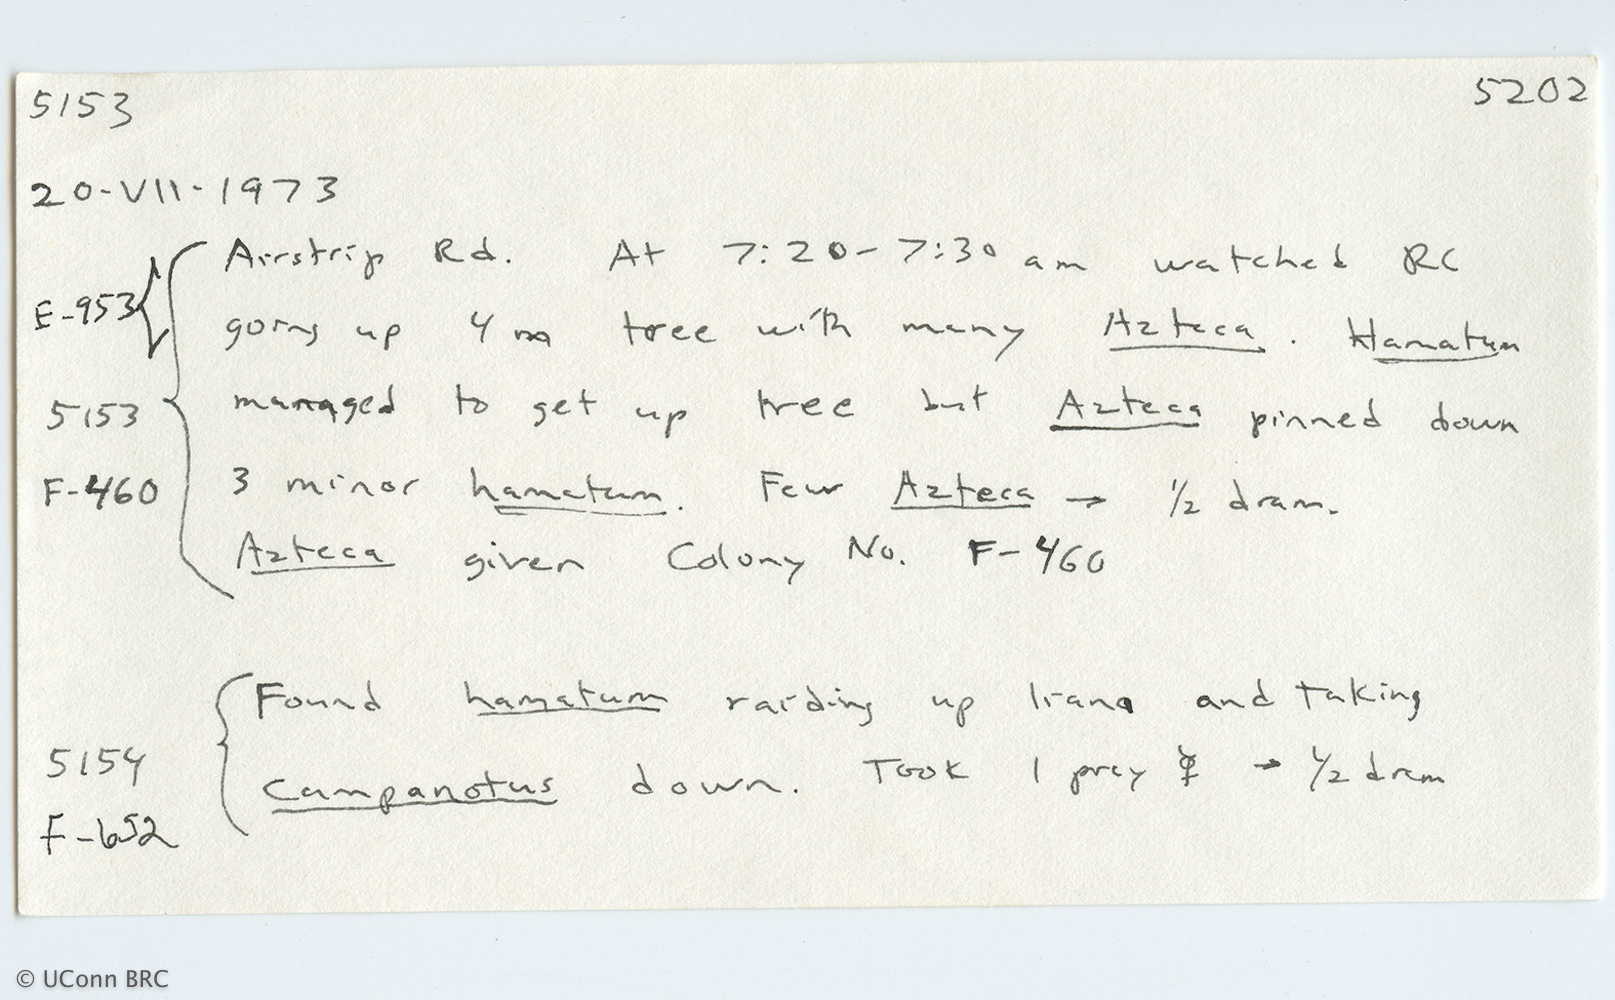 5153 5202
20-VII-1973
Airstrip Rd. At 7:20-7:30 am watched RC
E-953 going up 4 m tree with many Azteca. Hamatum
5153 managed to get up tree but Azteca pinned down
F-460 3 minor hamatum. Few Azteca → 1/2 dram.
Azteca given Colony No. F-460
Found hamatum raiding up liana and taking
5154 Campanotus down. Took 1 prey ☿ → 1/2 dram
F-652
© UConn BRC